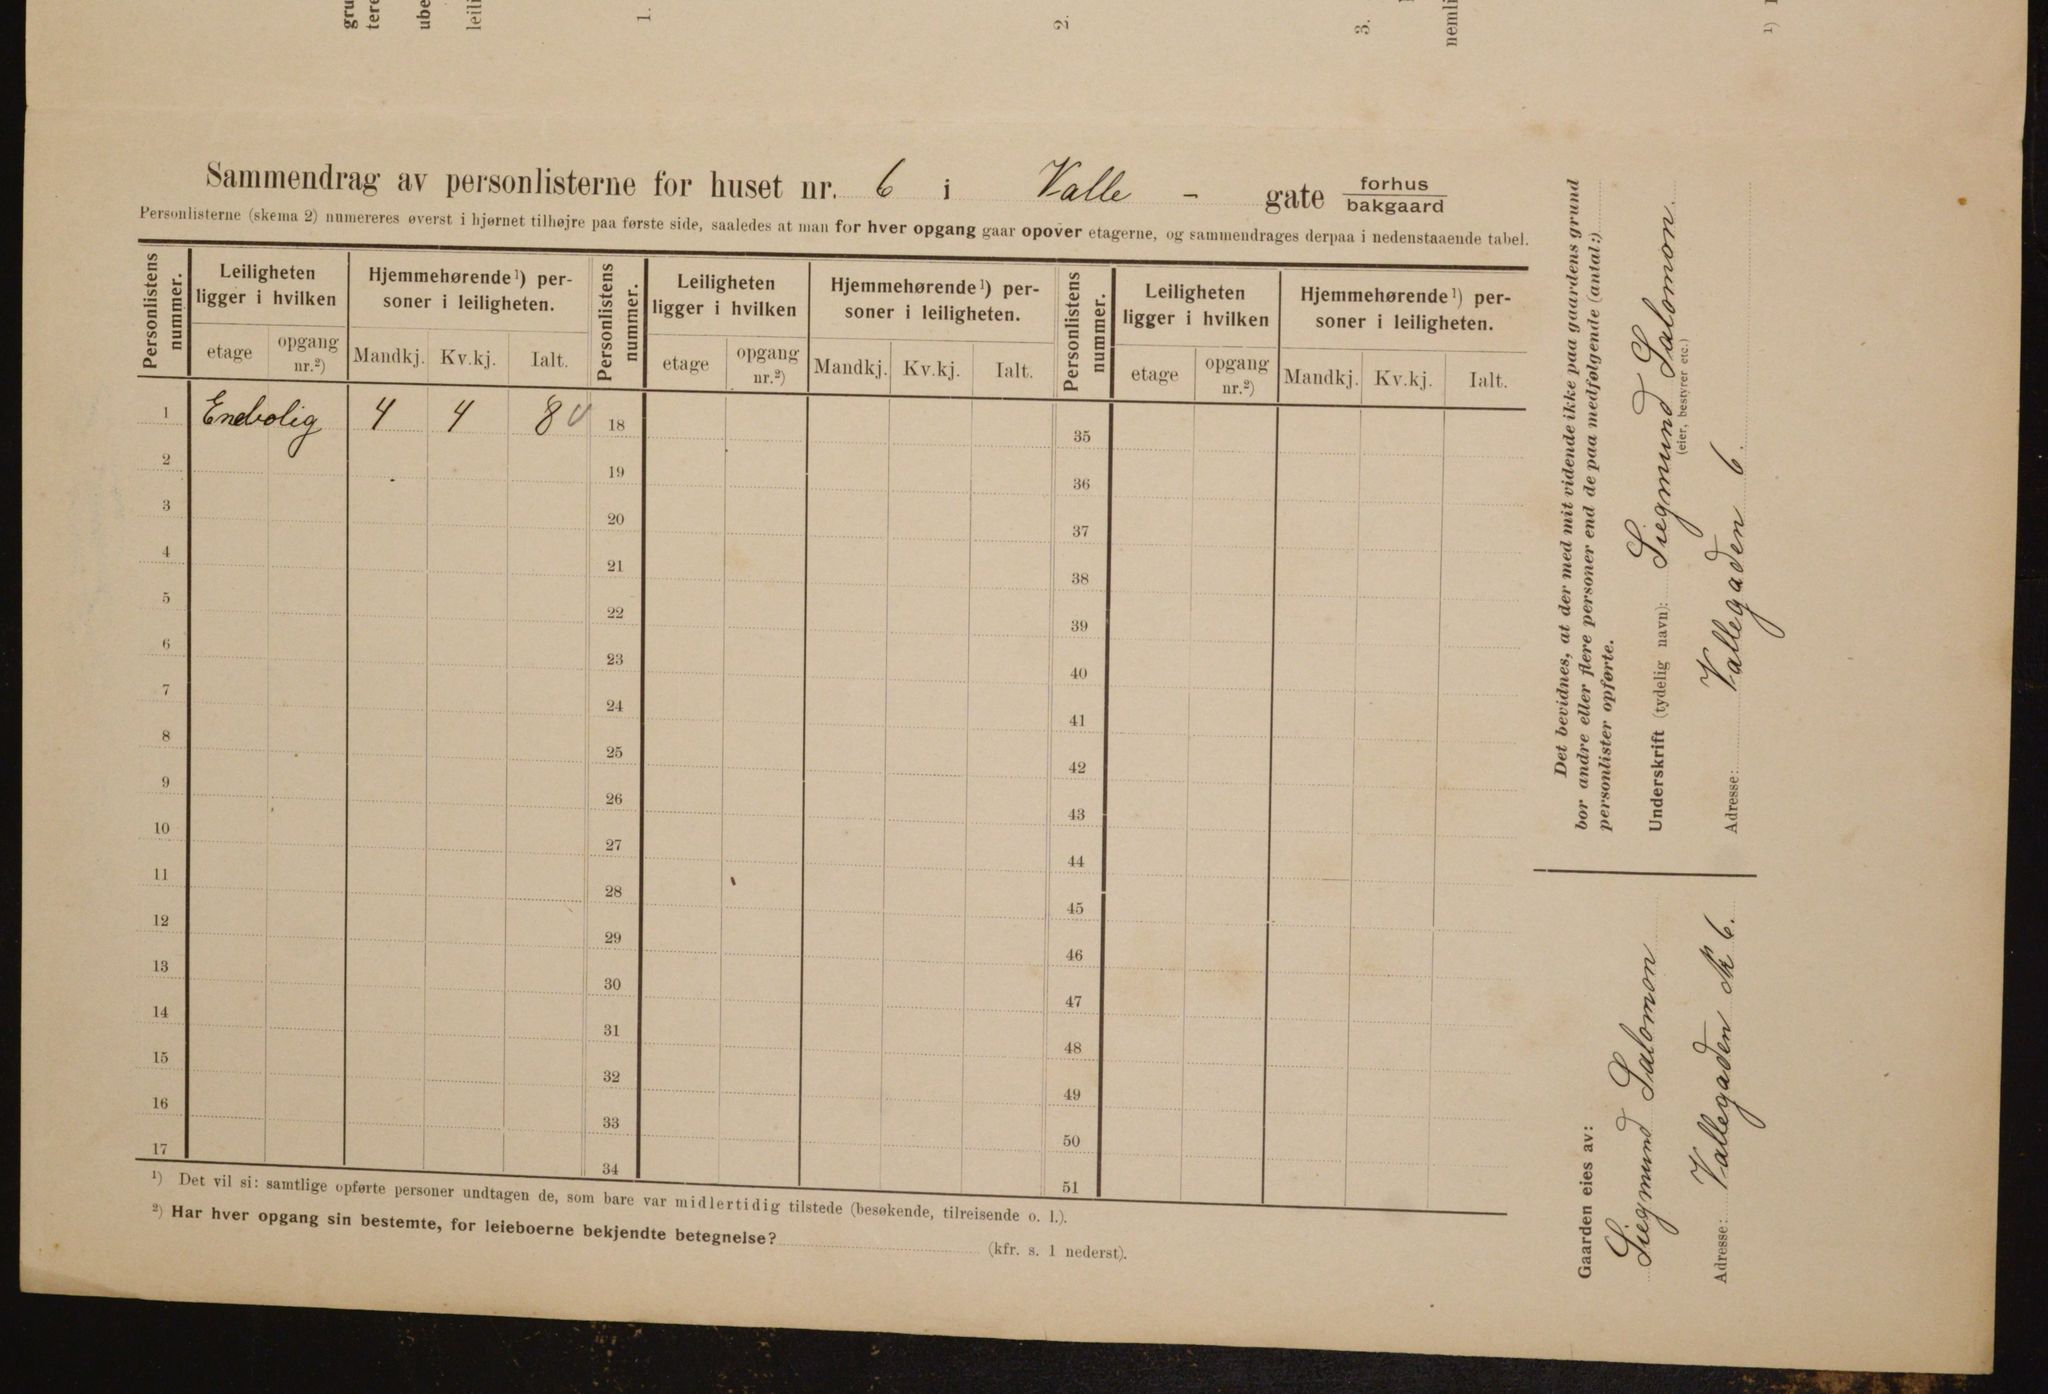 gru
tere
ube
leili
1.
2.
3.
nemli
¹)
Sammendrag av personlisterne for huset nr. 6 i Valle - gate forhus
bakgaard
Personlisterne (skema 2) numereres øverst i hjørnet tilhøjre paa første side, saaledes at man for hver opgang gaar opover etagerne, og sammendrages derpaa i nedenstaaende tabel.
Personlistens nummer.
Leiligheten ligger i hvilken
Hjemmehørende¹) personer i leiligheten.
Personlistens nummer.
Leiligheten ligger i hvilken
Hjemmehørende¹) personer i leiligheten.
Personlistens nummer.
Leiligheten ligger i hvilken
Hjemmehørende¹) personer i leiligheten.
etage opgang nr.²) Mandkj. Kv.kj. Ialt. etage opgang nr.²) Mandkj. Kv.kj. Ialt. etage opgang nr.²) Mandkj. Kv.kj. Ialt.
1 Enebolig 4 4 8 18 35
2 19 36
3 20 37
4 21 38
5 22 39
6 23 40
7 24 41
8 25 42
9 26 43
10 27 44
11 28 45
12 29 46
13 30 47
14 31 48
15 32 49
16 33 50
17 34 51
¹) Det vil si: samtlige opførte personer undtagen de, som bare var midlertidig tilstede (besøkende, tilreisende o. l.).
²) Har hver opgang sin bestemte, for leieboerne bekjendte betegnelse? (kfr. s. 1 nederst).
Det bevidnes, at der med mit vidende ikke paa gaardens grund
bor andre eller flere personer end de paa medfølgende (antal:)
personlister opførte.
Underskrift (tydelig navn): Siegmund Salomon.
(eier, bestyrer etc.)
Adresse: Vallegaden 6.
Gaarden eies av:
Siegmund Salomon
Adresse: Vallegaden № 6.